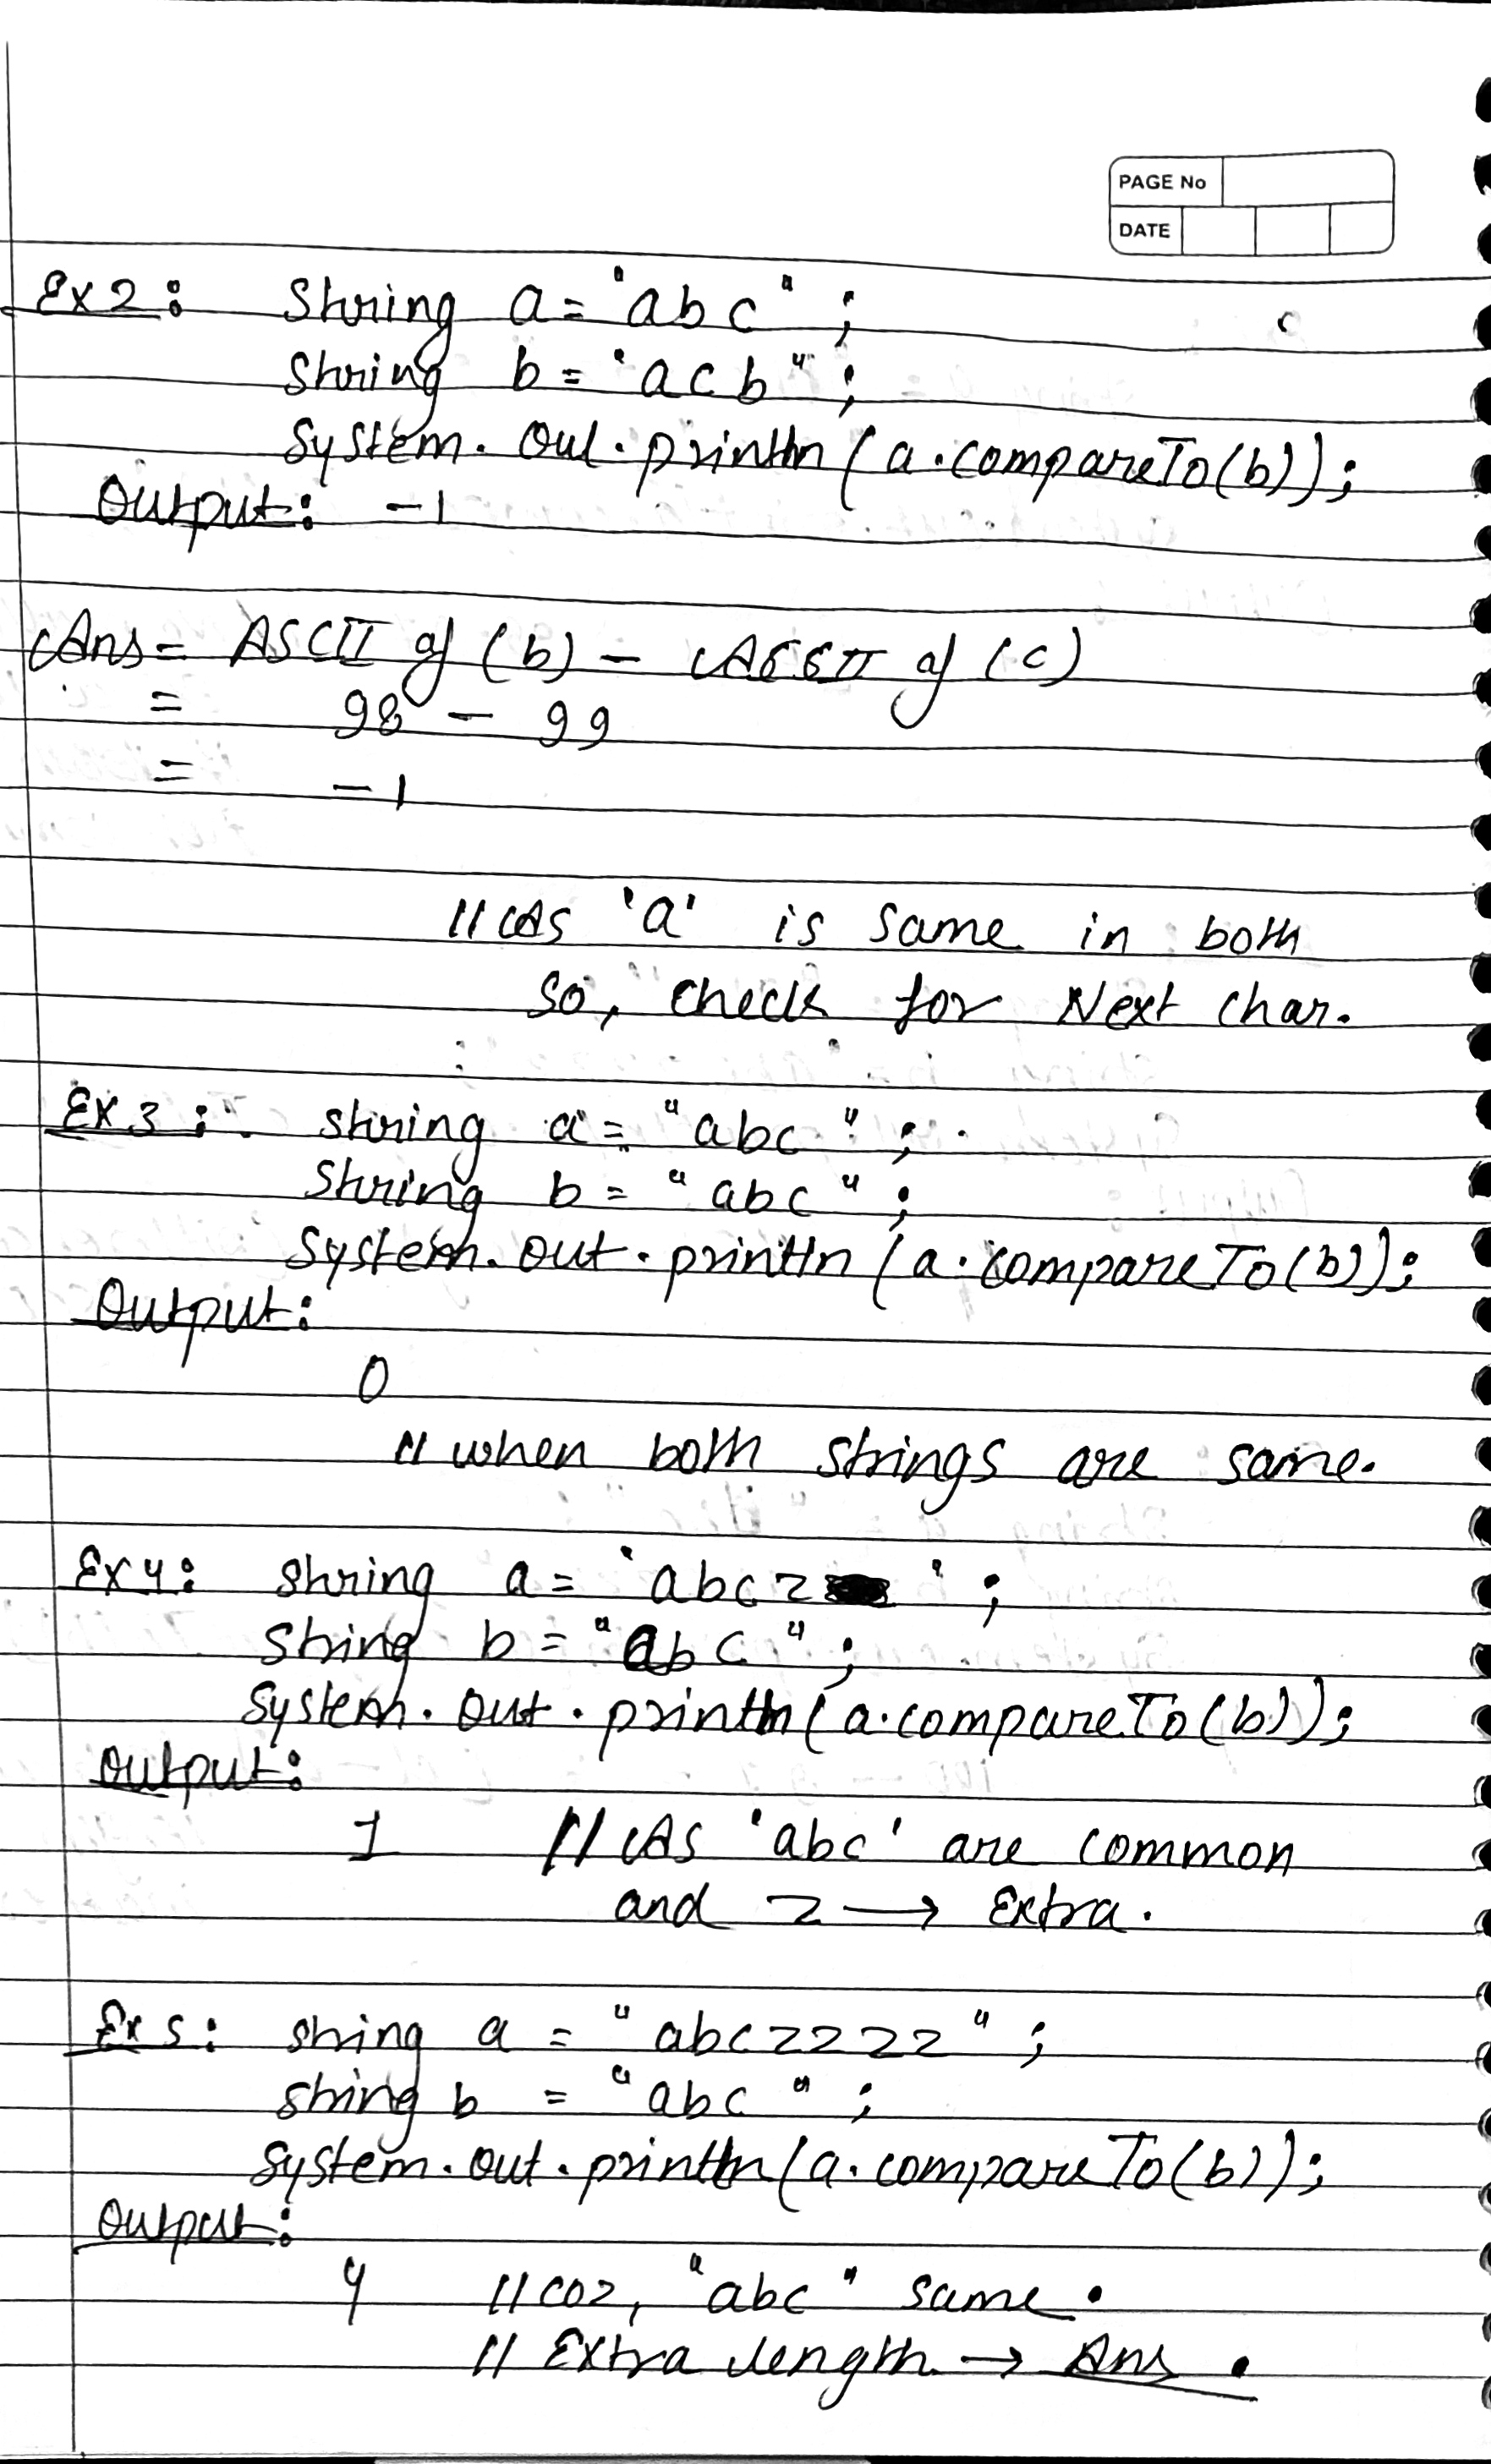 PAGE No
DATE
Ex2: String a = "abc";
String b = "acb";
System.out.println(a.compareTo(b));
Output: -1
Ans = ASCII of (b) - ASCII of (c)
= 98 - 99
= -1
// As 'a' is same in both
So, check for Next char.
Ex3: String a = "abc";
String b = "abc";
System.out.println(a.compareTo(b));
Output:
0
// when both strings are same.
Ex4: String a = "abcz";
String b = "abc";
System.out.println(a.compareTo(b));
Output:
1 // As 'abc' are common
and z → Extra.
Ex5: String a = "abczzzz";
String b = "abc";
System.out.println(a.compareTo(b));
Output:
4 // coz, "abc" same.
// Extra length → Ans.